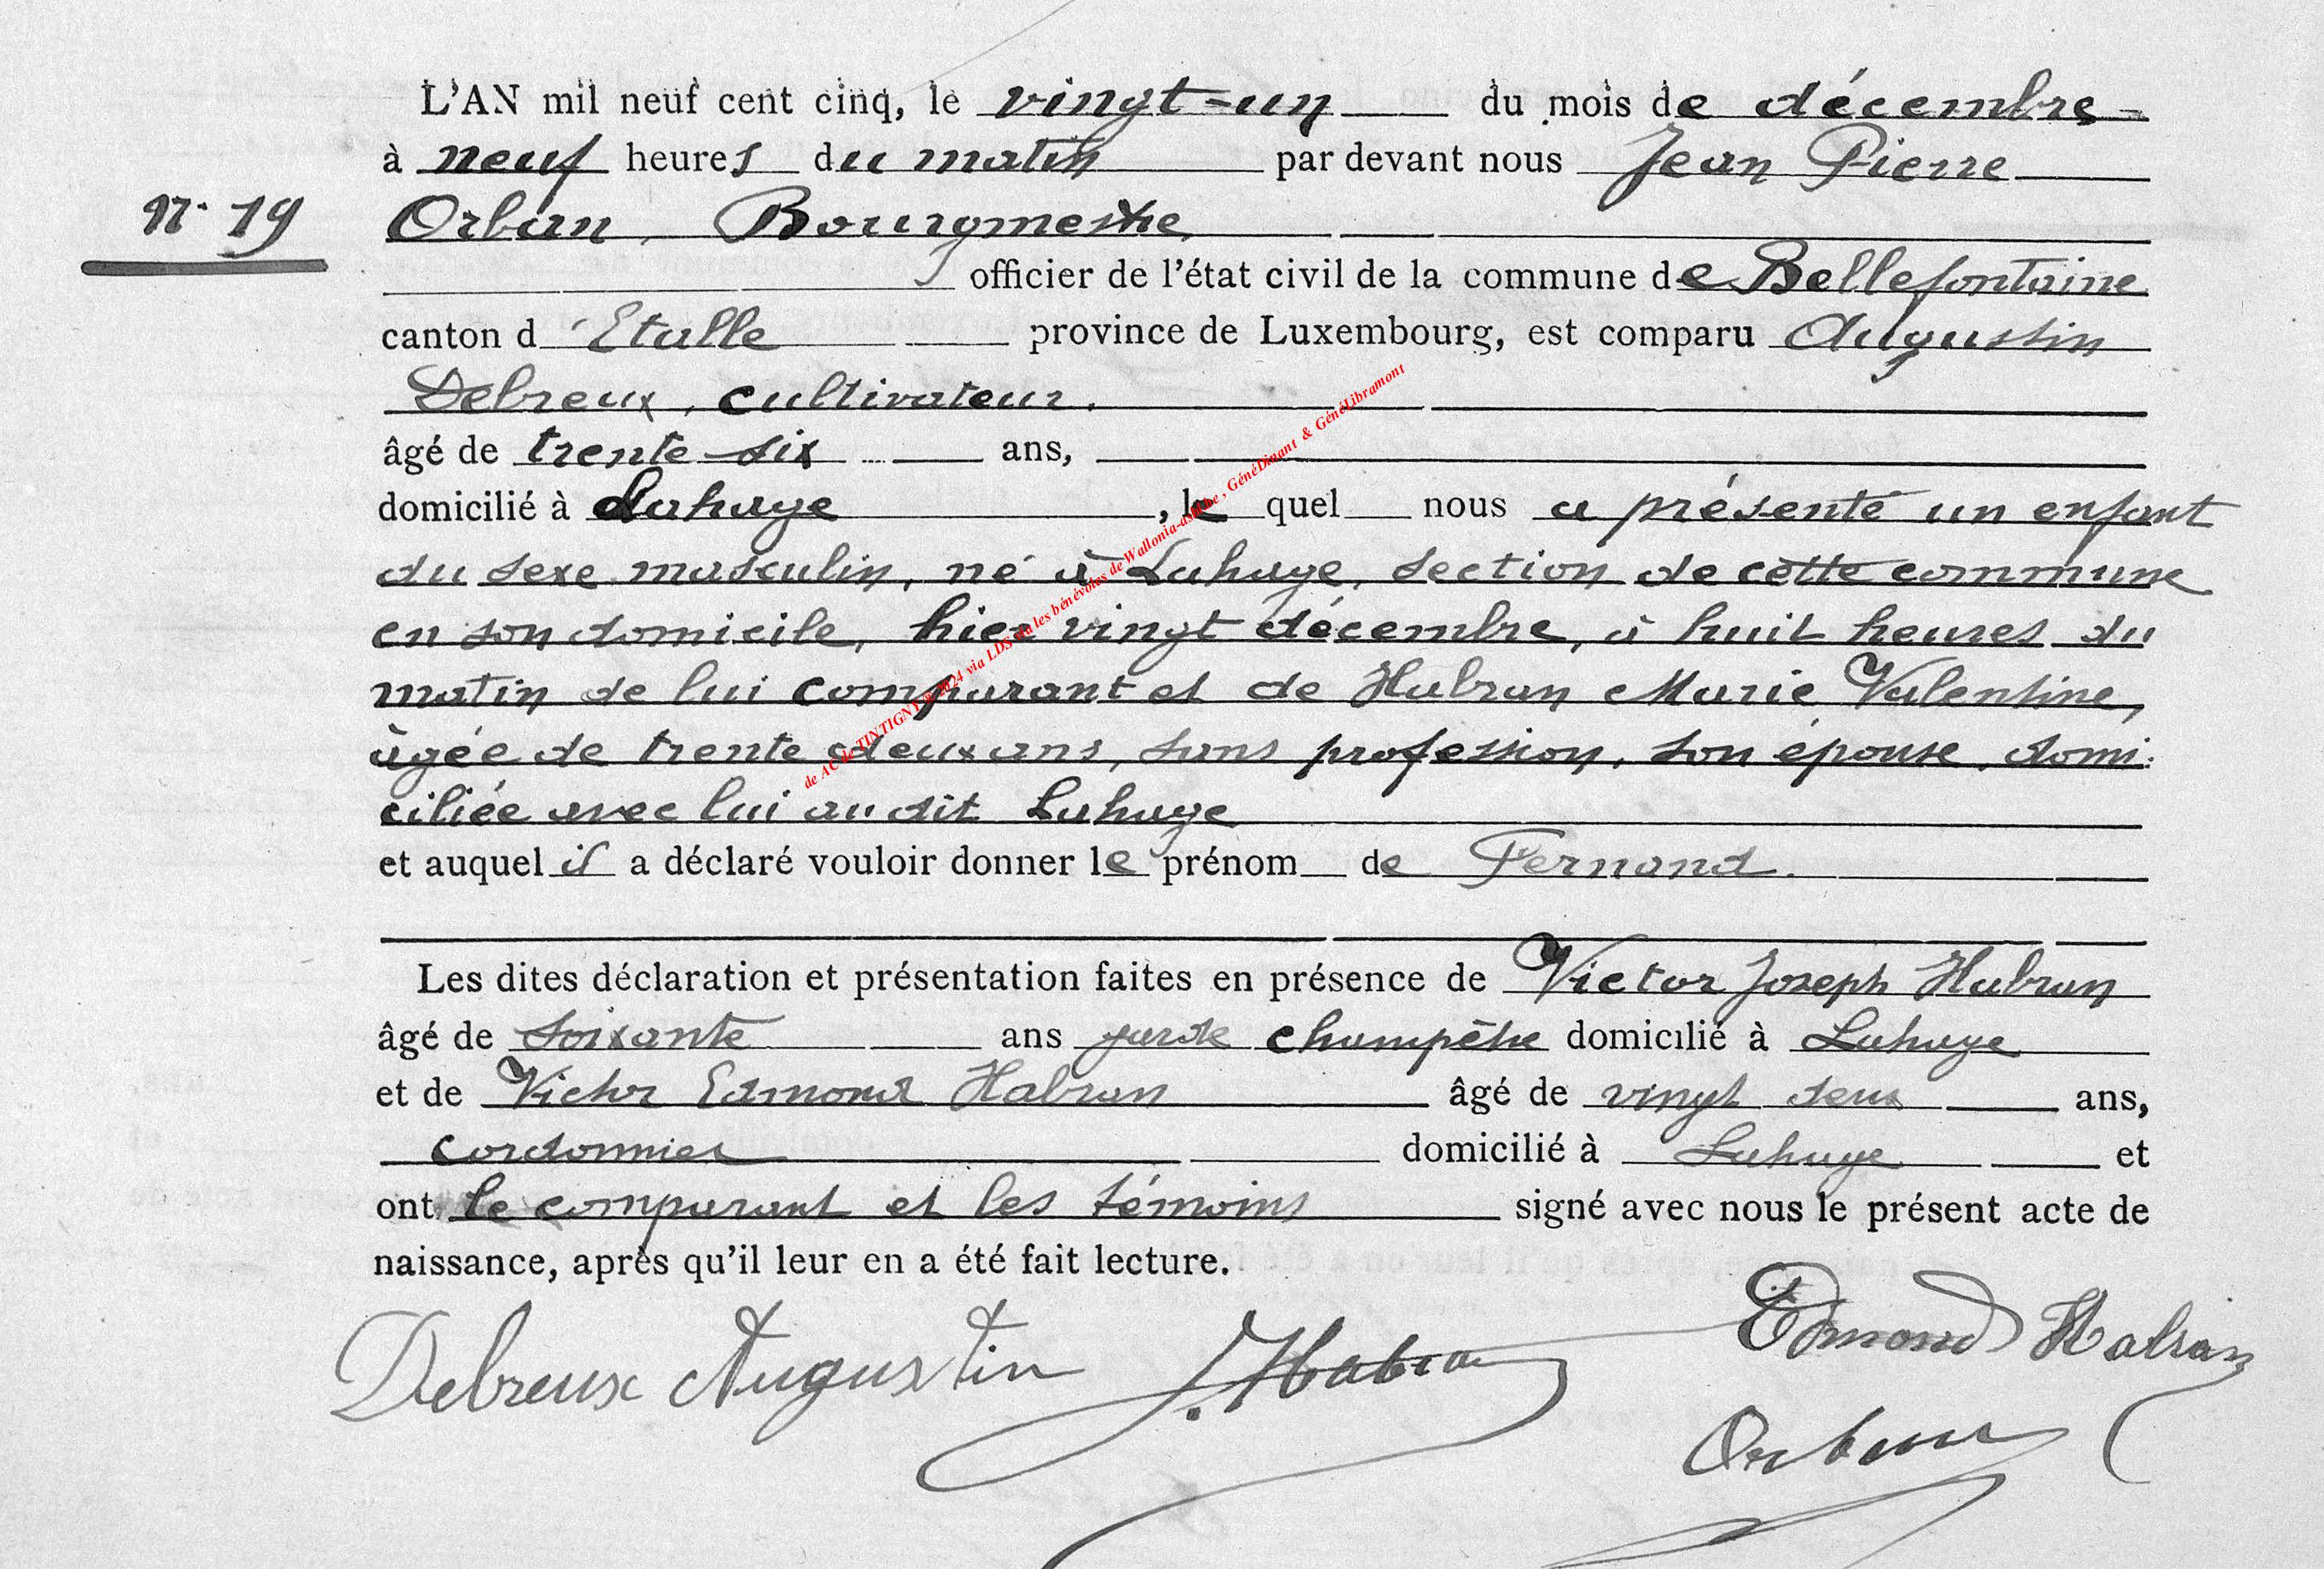 L'AN mil neuf cent cinq, le vingt-un du mois de décembre
à neuf heures du matin par devant nous Jean Pierre
N° 19 Orban, Bourgmestre
officier de l'état civil de la commune de Bellefontaine
canton d'Etalle province de Luxembourg, est comparu Augustin
Debreux, cultivateur.
âgé de trente-six ans,
domicilié à Lahage, le quel nous a présenté un enfant
du sexe masculin, né à Lahage, section de cette commune
en son domicile, hier vingt décembre, à huit heures du
matin de lui comparant et de Habran Marie Valentine,
âgée de trente deux ans, sans profession, son épouse, domi-
ciliée avec lui au dit Lahage
et auquel il a déclaré vouloir donner le prénom de Fernand.
Les dites déclaration et présentation faites en présence de Victor Joseph Habran
âgé de soixante ans garde champêtre domicilié à Lahage
et de Victor Edmond Habran âgé de vingt deux ans,
cordonnier domicilié à Lahage et
ont le comparant et les témoins signé avec nous le présent acte de
naissance, après qu'il leur en a été fait lecture.
Debreux Augustin J. Habran Edmond Habran
Orban
de AC de TINTIGNY 2024 via LDS via les bénévoles de Wallonia-asbl.be, GénéDinant & GénéLibramont